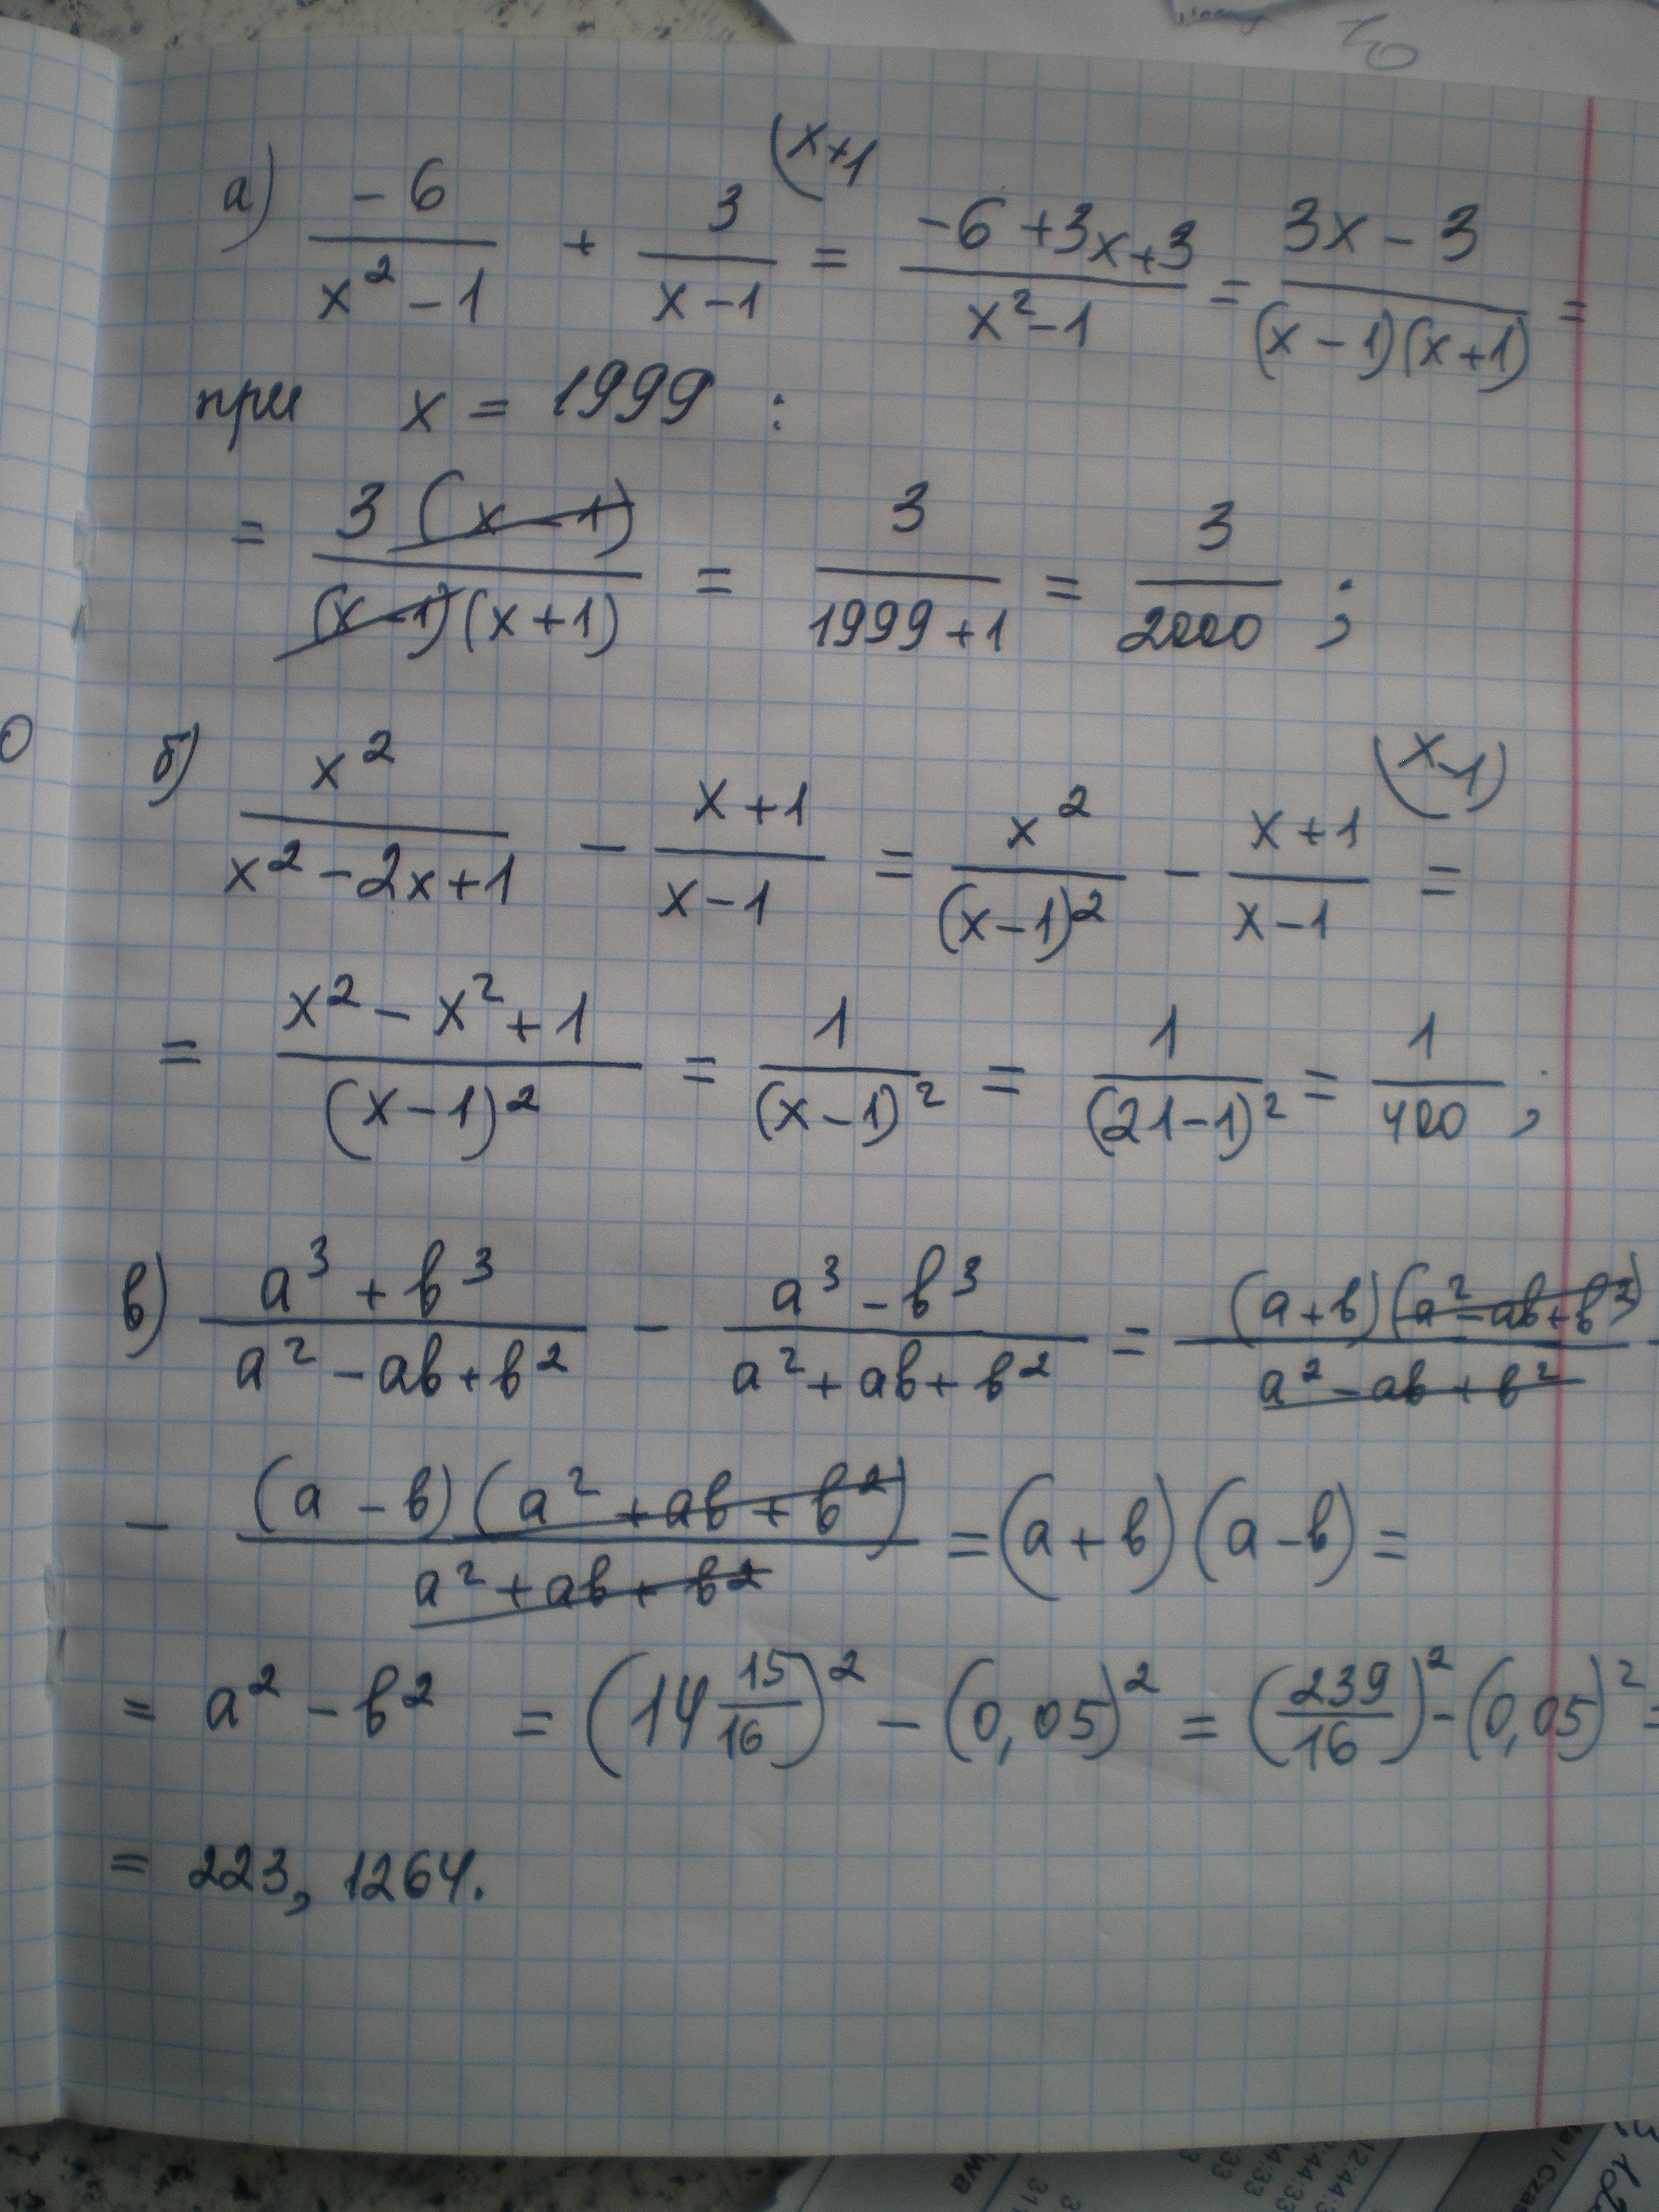 а) -6/(x² - 1) + 3/(x - 1) (x+1 = (-6 + 3x + 3)/(x² - 1) = (3x - 3)/((x - 1)(x + 1)) =
при x = 1999 :
= 3(x - 1)/((x - 1)(x + 1)) = 3/(1999 + 1) = 3/2000 ;
б) x²/(x² - 2x + 1) - (x + 1)/(x - 1) = x²/(x - 1)² - (x + 1)/(x - 1) (x - 1) =
= (x² - x² + 1)/(x - 1)² = 1/(x - 1)² = 1/(21 - 1)² = 1/400 ;
в) (a³ + b³)/(a² - ab + b²) - (a³ - b³)/(a² + ab + b²) = (a + b)(a² - ab + b²)/(a² - ab + b²) -
- (a - b)(a² + ab + b²)/(a² + ab + b²) = (a + b)(a - b) =
= a² - b² = (14 15/16)² - (0,05)² = (239/16)² - (0,05)² =
= 223, 1264.